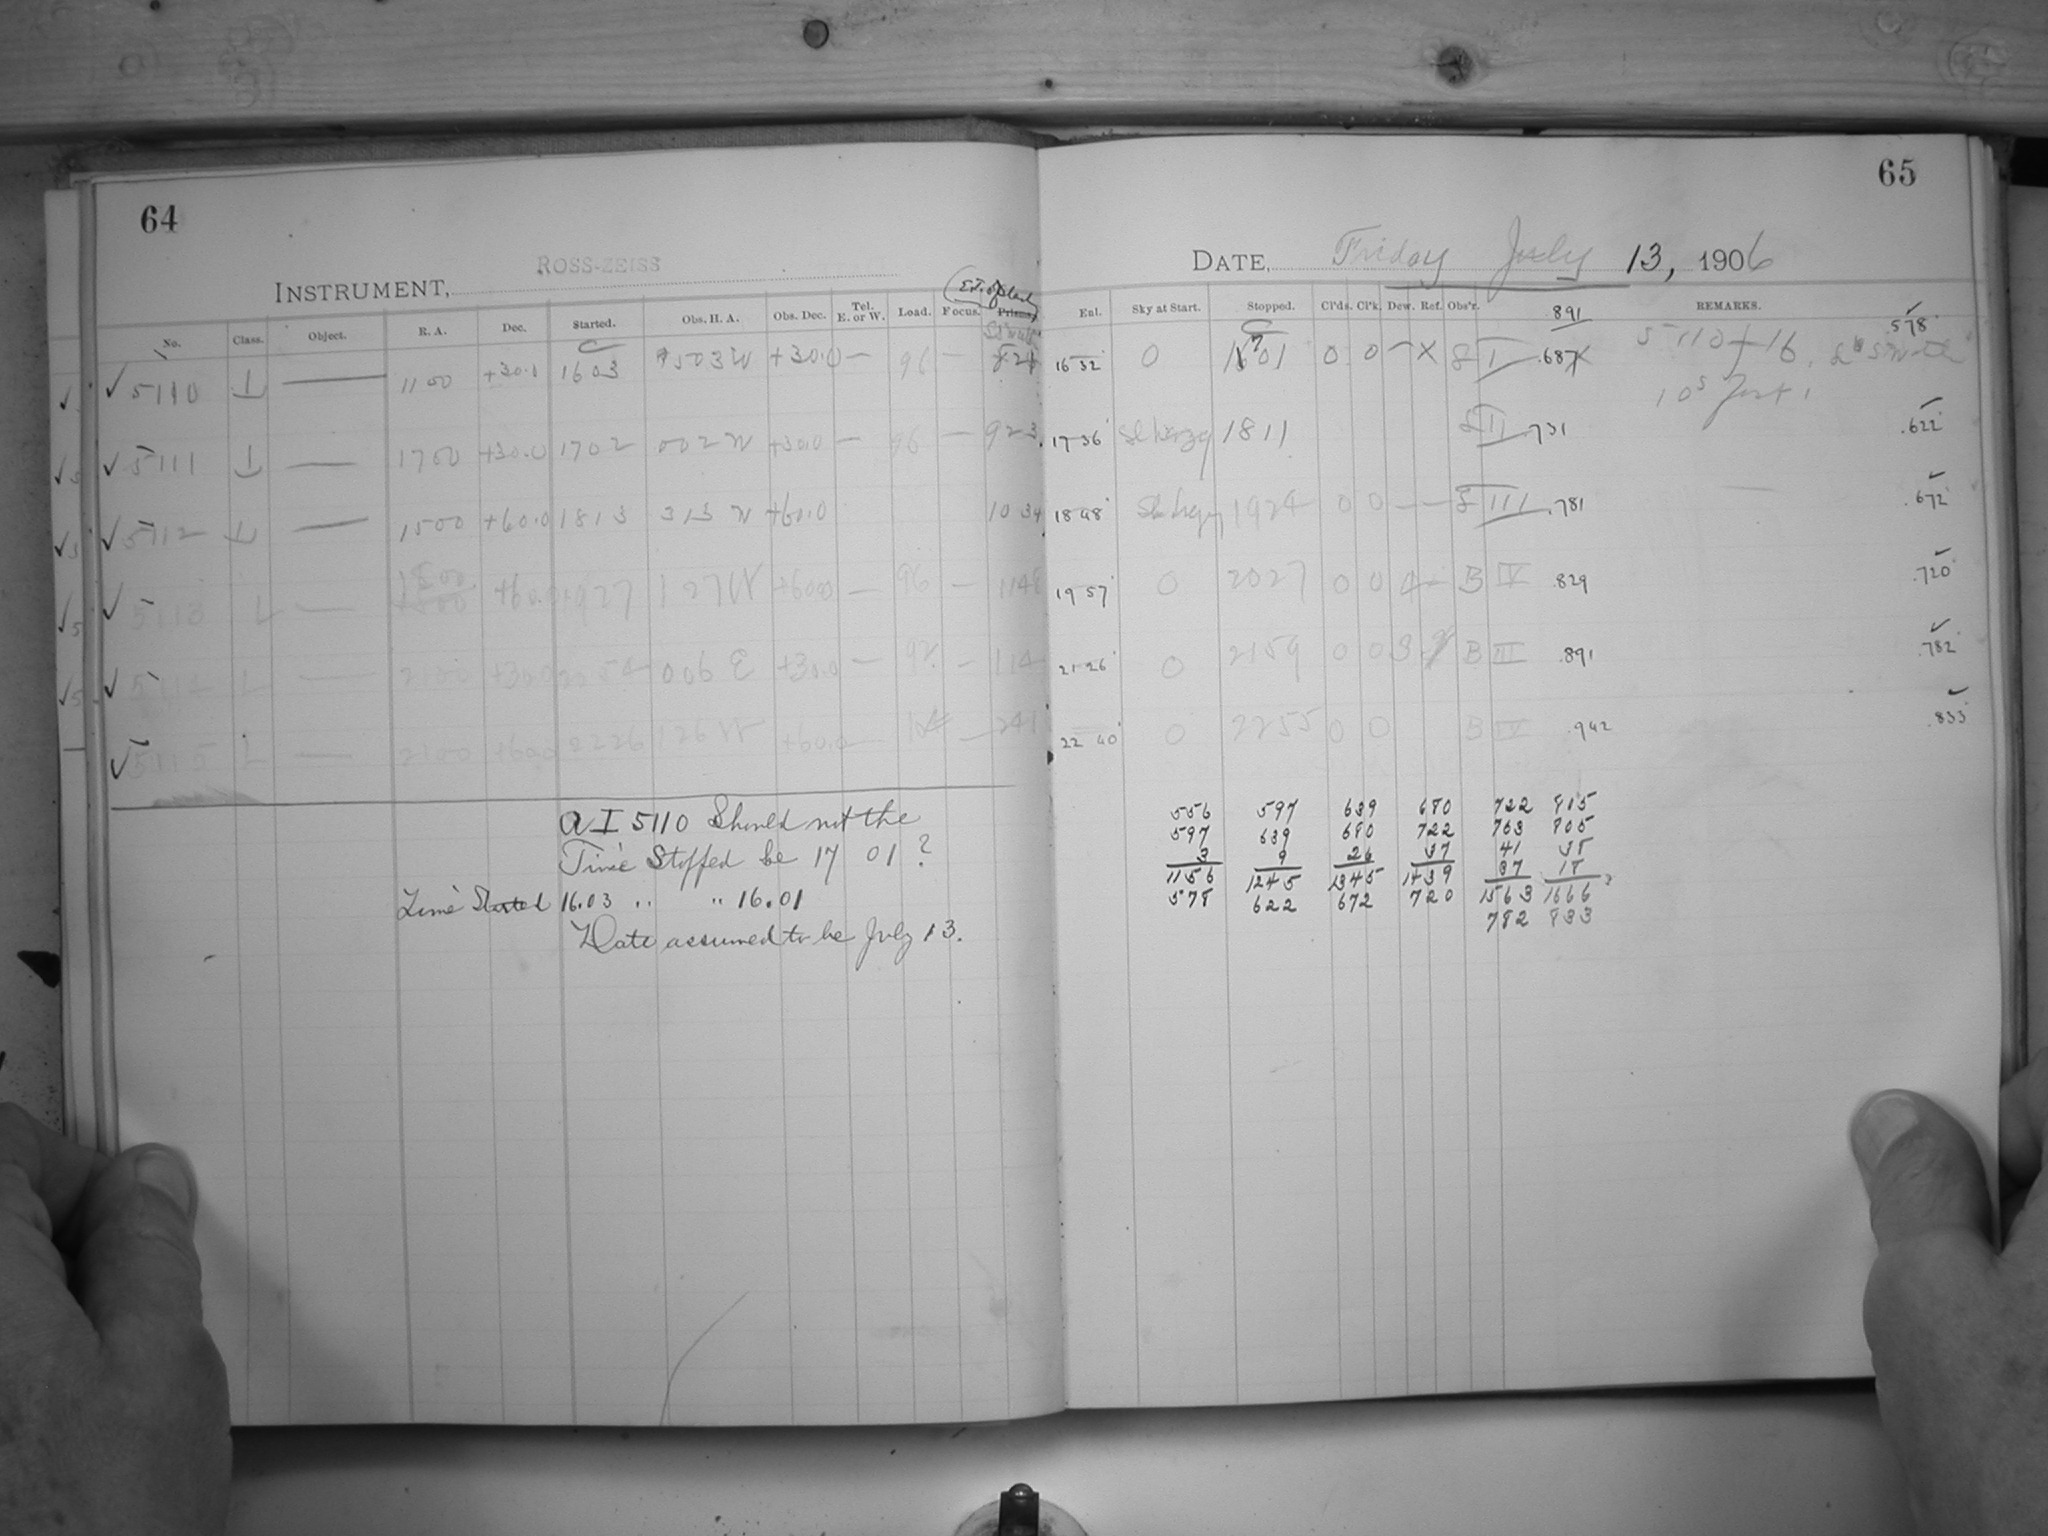 64
65
INSTRUMENT, ROSS-ZEISS
DATE, Friday July 13, 1906
No. Class. Object. R. A. Dec. Started. Obs. H. A. Obs. Dec. Tel. E. or W. Load. Focus. Prism.
Enl. Sky at Start. Stopped. Cl'ds. Cl'k. Dew. Ref. Obs'r. 891 REMARKS.
✓ 5110 L — 1100 +30.0 1603 503 W +30.0 — 96 — 824 16 32 0 1601 0 0 — X I .687 5110 f 16 .578
✓ 5111 L — 1700 +30.0 1702 002 W +30.0 — 96 — 923 17 36 1811 II .731 .622
✓ 5112 L — 1500 +60.0 1813 313 W +60.0 1034 18 48 1924 0 0 — — III .781 .672
✓ 5113 L — 1800 +60.0 1927 127 W +60.0 — 96 — 114 19 57 0 2027 0 0 B IV .829 .720
✓ 511 L — 2100 +30.0 2054 006 E +30.0 — 92 — 114 21 26 0 2159 0 0 3 B III .891 .782
✓ 5115 L — 2100 +60.0 2226 126 W +60.0 — 241 22 40 0 2255 0 0 B IV .942 .833
A I 5110 Should not the
Time Stopped be 17 01 ?
Time Started 16.03 " " 16.01
Date assumed to be July 13.
556 597 639 680 722 815
597 639 680 722 763 805
3 9 26 37 41 38
1156 1245 1345 1439 37 18
578 622 672 720 1563 1666
782 833